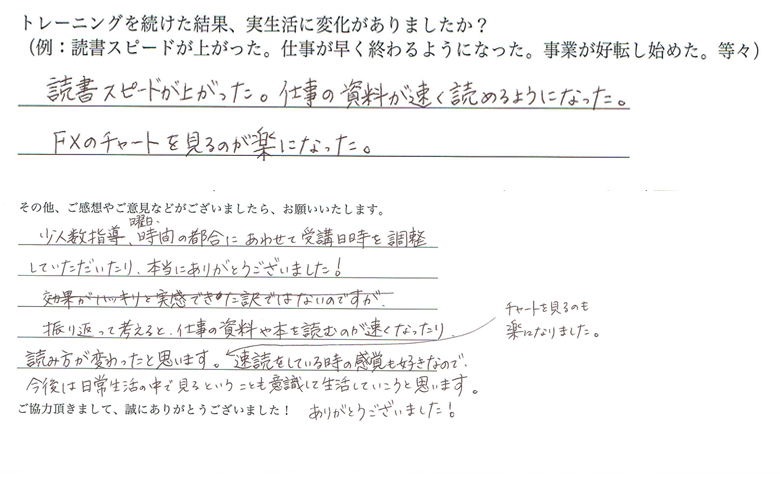 トレーニングを続けた結果、実生活に変化がありましたか？
（例：読書スピードが上がった。仕事が早く終わるようになった。事業が好転し始めた。等々）
読書スピードが上がった。仕事の資料が速く読めるようになった。
FXのチャートを見るのが楽になった。
その他、ご感想やご意見などがございましたら、お願いいたします。
曜日、
少人数指導、時間の都合にあわせて受講日時を調整
していただいたり、本当にありがとうございました！
効果がハッキリと実感できた訳ではないのですが、
振り返って考えると、仕事の資料や本を読むのが速くなったり、
チャートを見るのも
楽になりました。
読み方が変わったと思います。速読をしている時の感覚も好きなので、
今後は日常生活の中で見るということも意識して生活していこうと思います。
ご協力頂きまして、誠にありがとうございました！ ありがとうございました！